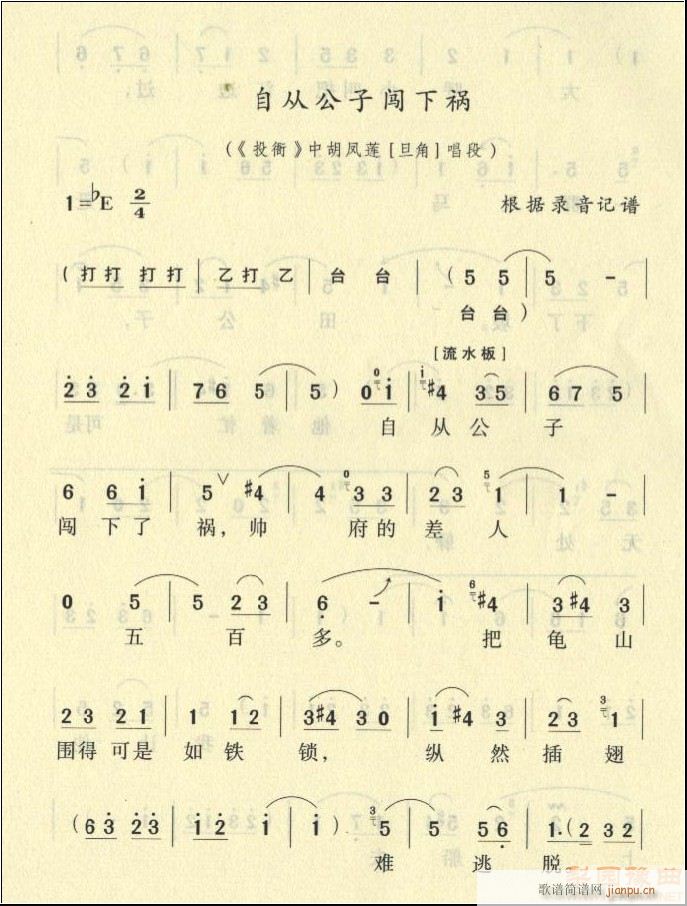 自从公子闯下祸
(《投衙》中胡凤莲[旦角]唱段)
1=♭E 2/4
根据录音记谱
(打打 打打 | 乙打 乙 | 台 台 | (5 5 | 5 - |
台台)
[流水板]
2̇3̇ 2̇1̇ | 76 5 | 5) 01̇ | #4 35 | 67 5 |
自 从 公 子
6 61̇ | 5 ∨ #4 | 4 33 | 23 1 | 1 - |
闯 下 了 祸, 帅 府 的 差 人
0 5 | 5 23 | 6̣ - | 1̇ #4 | 3#4 3 |
五 百 多。 把 龟 山
23 21 | 1 12 | 3#4 30 | 1̇#4 3 | 23 1 |
围得 可是 如铁 锁, 纵 然 插 翅
(6̇3̇ 2̇3̇ | 1̇2̇ 1̇ | 1̇) | 5 5 | 56̣ | 1.(2 32
难 逃 脱。
梨园豫曲
歌谱简谱网 jianpu.cn